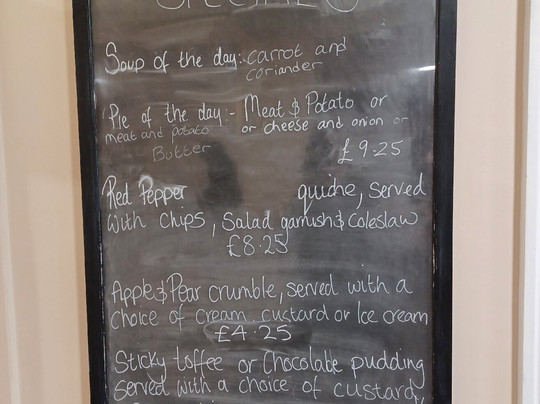 Soup of the day:- carrot and
coriander
Pie of the day:- Meat & Potato or
meat and potato or cheese and onion or
Butter £9.25
Red Pepper quiche, served
with chips, Salad garnish & Coleslaw
£8.25
Apple & Pear crumble, served with a
choice of cream, custard or Ice cream
£4.25
Sticky toffee or Chocolate pudding
served with a choice of custard,